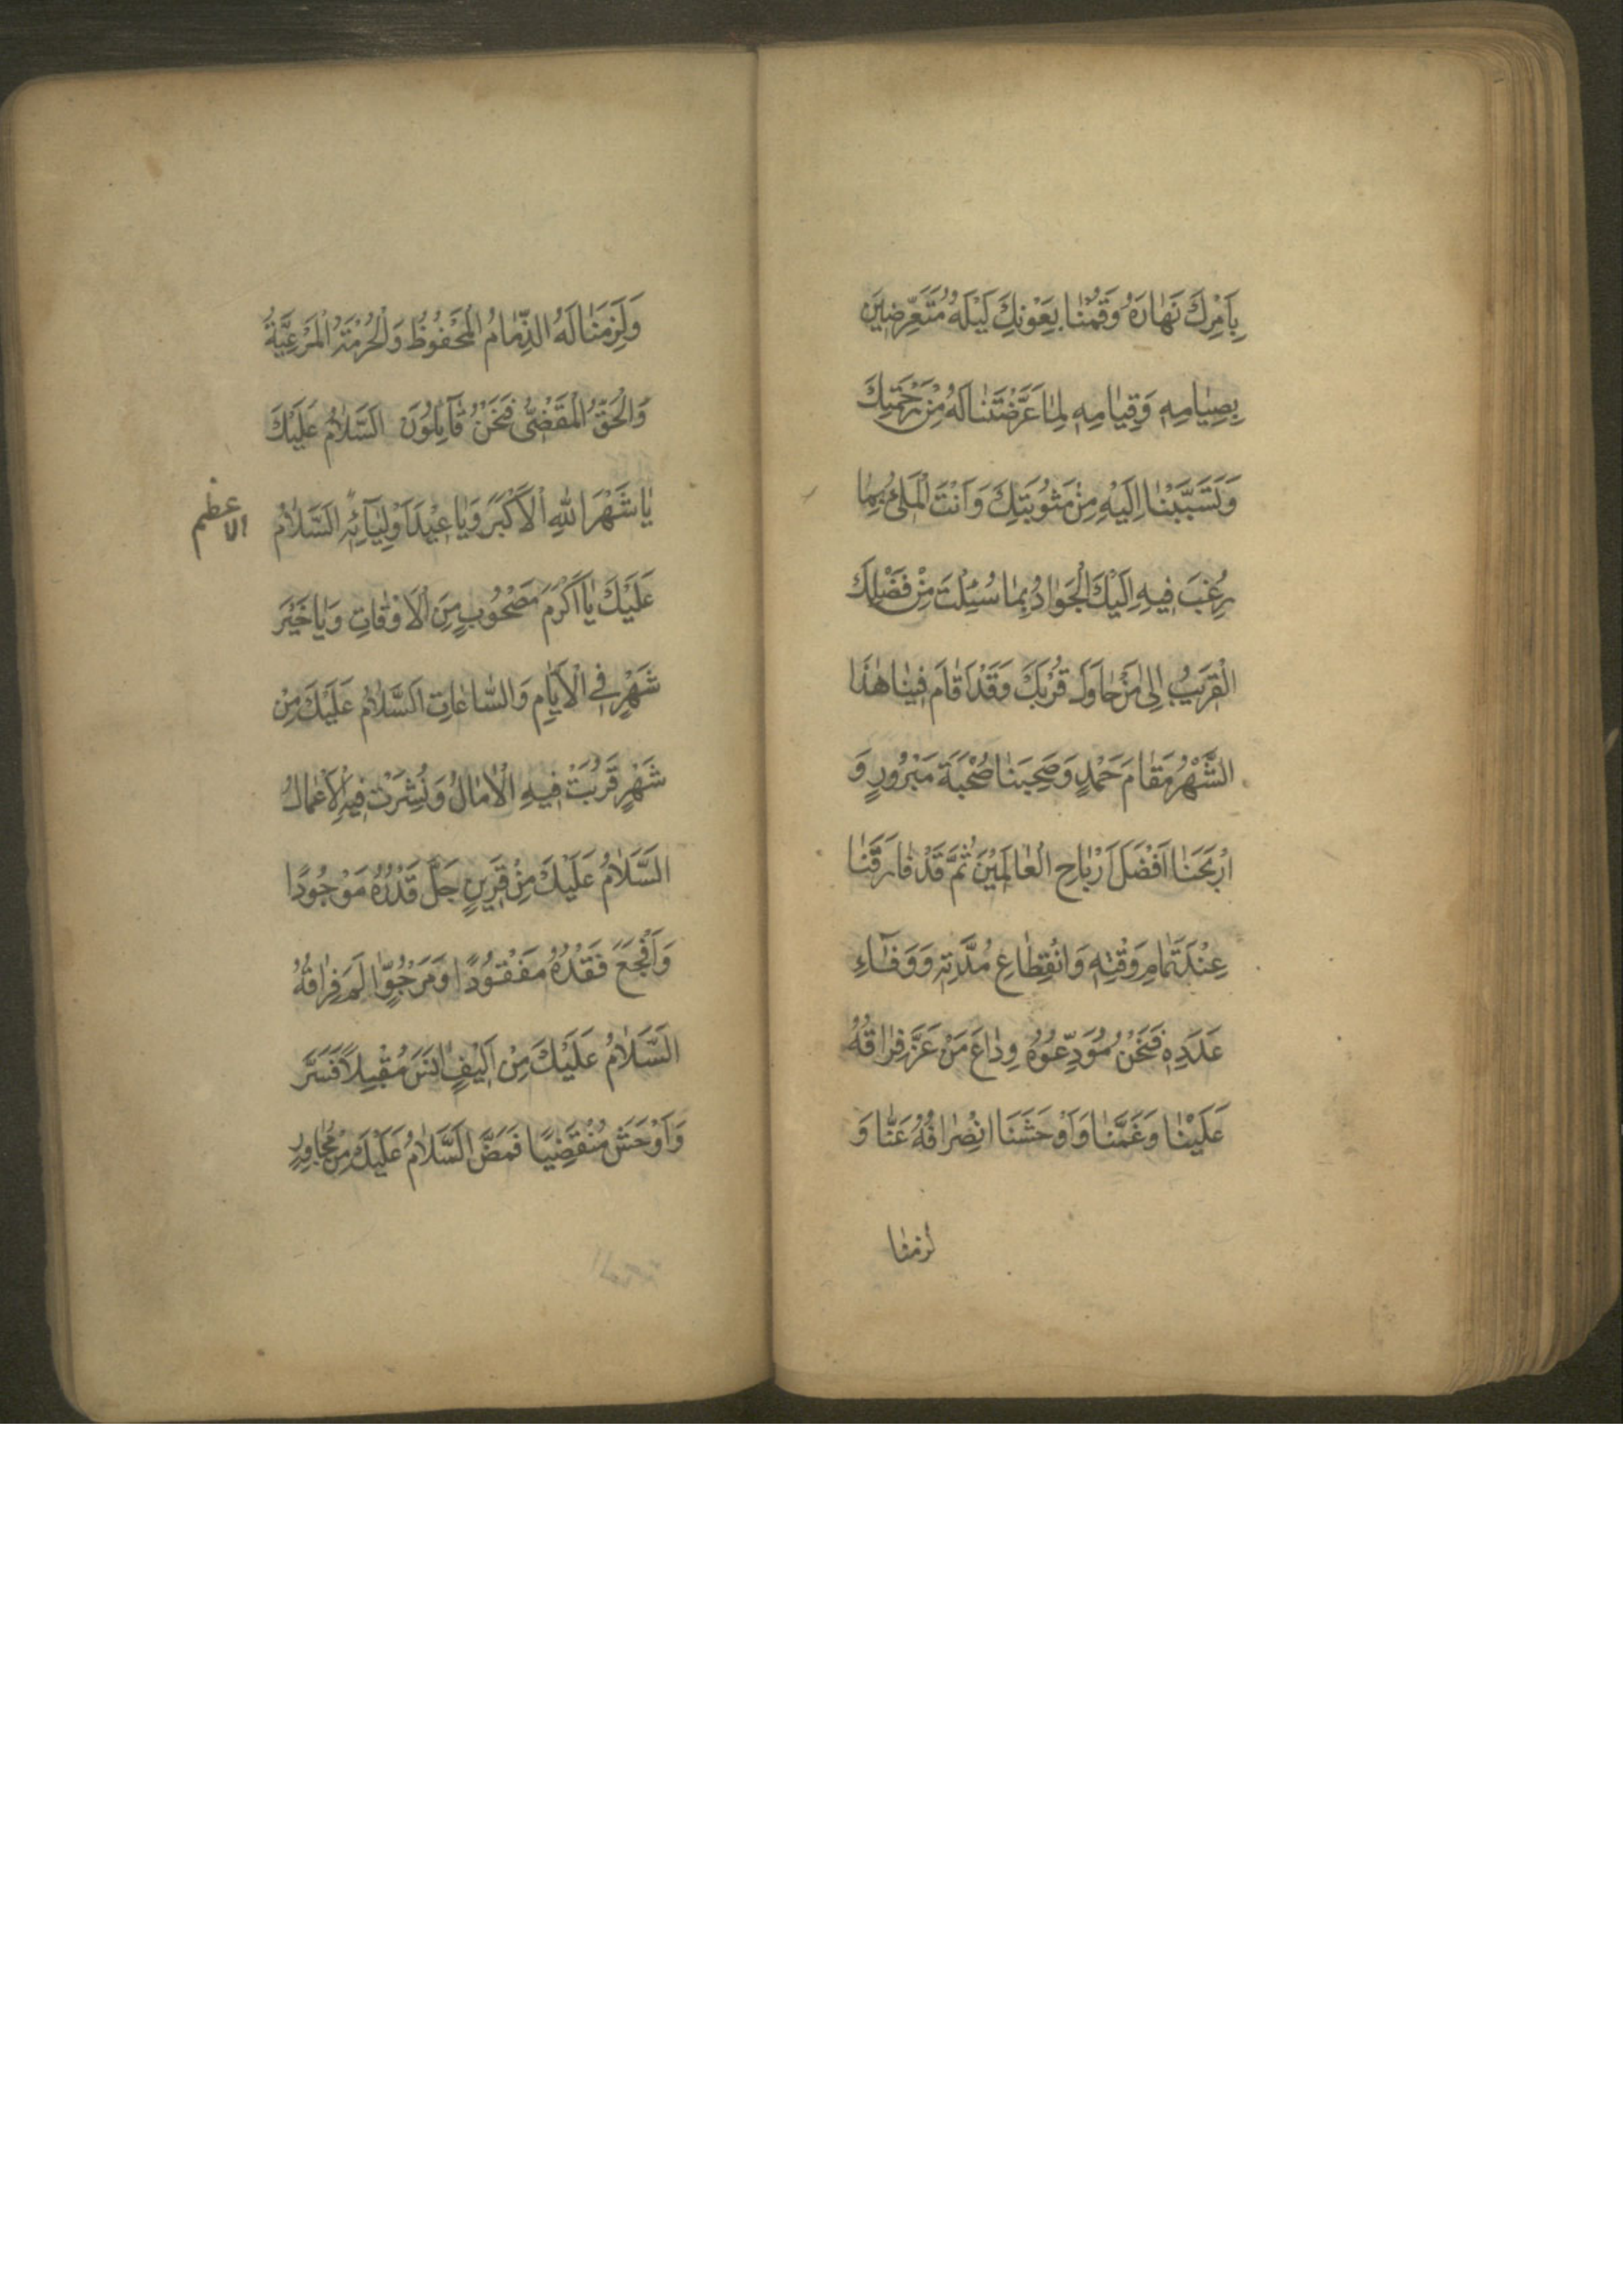 بِاَمْرِكَ نَهٰارَهُ وَقُمْنٰا بِعَوْنِكَ لَيْلَهُ مُتَعَرِّضِينَ
بِصِيٰامِهِ وَقِيٰامِهِ لِمٰا عَرَّضْتَنٰا لَهُ مِنْ رَحْمَتِكَ
وَتَسَبَّبْنٰا اِلَيْهِ مِنْ مَثُوبَتِكَ وَاَنْتَ الْمَلِئُ بِمٰا
رُغِبَ فِيهِ اِلَيْكَ الْجَوٰادُ بِمٰا سُئِلْتَ مِنْ فَضْلِكَ
الْقَرِيبُ اِلىٰ مَنْ حٰاوَلَ قُرْبَكَ وَقَدْ اَقٰامَ فِينٰا هٰذَا
الشَّهْرُ مَقٰامَ حَمْدٍ وَصَحِبَنٰا صُحْبَةَ مَبْرُورٍ وَ
اَرْبَحَنٰا اَفْضَلَ اَرْبٰاحِ الْعٰالَمِيْنَ ثُمَّ قَدْ فٰارَقَنٰا
عِنْدَ تَمٰامِ وَقْتِهِ وَانْقِطٰاعِ مُدَّتِهِ وَوَفٰاءِ
عَدَدِهِ فَنَحْنُ مُوَدِّعُوهُ وِدٰاعَ مَنْ عَزَّ فِرٰاقُهُ
عَلَيْنٰا وَغَمَّنٰا وَاَوْحَشَنَا انْصِرٰافُهُ عَنّٰا وَ
لزمنا
وَلَزِمَنٰا لَهُ الذِّمٰامُ الْمَحْفُوظُ وَالْحُرْمَةُ الْمَرْعِيَّةُ
وَالْحَقُّ الْمَقْضِىُّ فَنَحْنُ قٰآئِلُونَ السَّلٰامُ عَلَيْكَ
يٰا شَهْرَ اللّٰهِ الْاَكْبَرَ وَيٰا عِيْدَ اَوْلِيٰآئِهِ السَّلٰامُ
الاعظم
عَلَيْكَ يٰا اَكْرَمَ مَصْحُوبٍ مِنَ الْاَوْقٰاتِ وَيٰا خَيْرَ
شَهْرٍ فِي الْاَيّٰامِ وَالسّٰاعٰاتِ السَّلٰامُ عَلَيْكَ مِنْ
شَهْرٍ قَرُبَتْ فِيهِ الْاٰمٰالُ وَنُشِرَتْ فِيهِ الْاَعْمٰالُ
السَّلٰامُ عَلَيْكَ مِنْ قَرِينٍ جَلَّ قَدْرُهُ مَوْجُودًا
وَاَفْجَعَ فَقْدُهُ مَفْقُودًا وَمَرْجُوٍّ اٰلَمَ فِرٰاقُهُ
السَّلٰامُ عَلَيْكَ مِنْ اَلِيْفٍ اٰنَسَ مُقْبِلًا فَسَرَّ
وَاَوْحَشَ مُنْقَضِيًا فَمَضَّ السَّلٰامُ عَلَيْكَ مِنْ مُجٰاوِرٍ